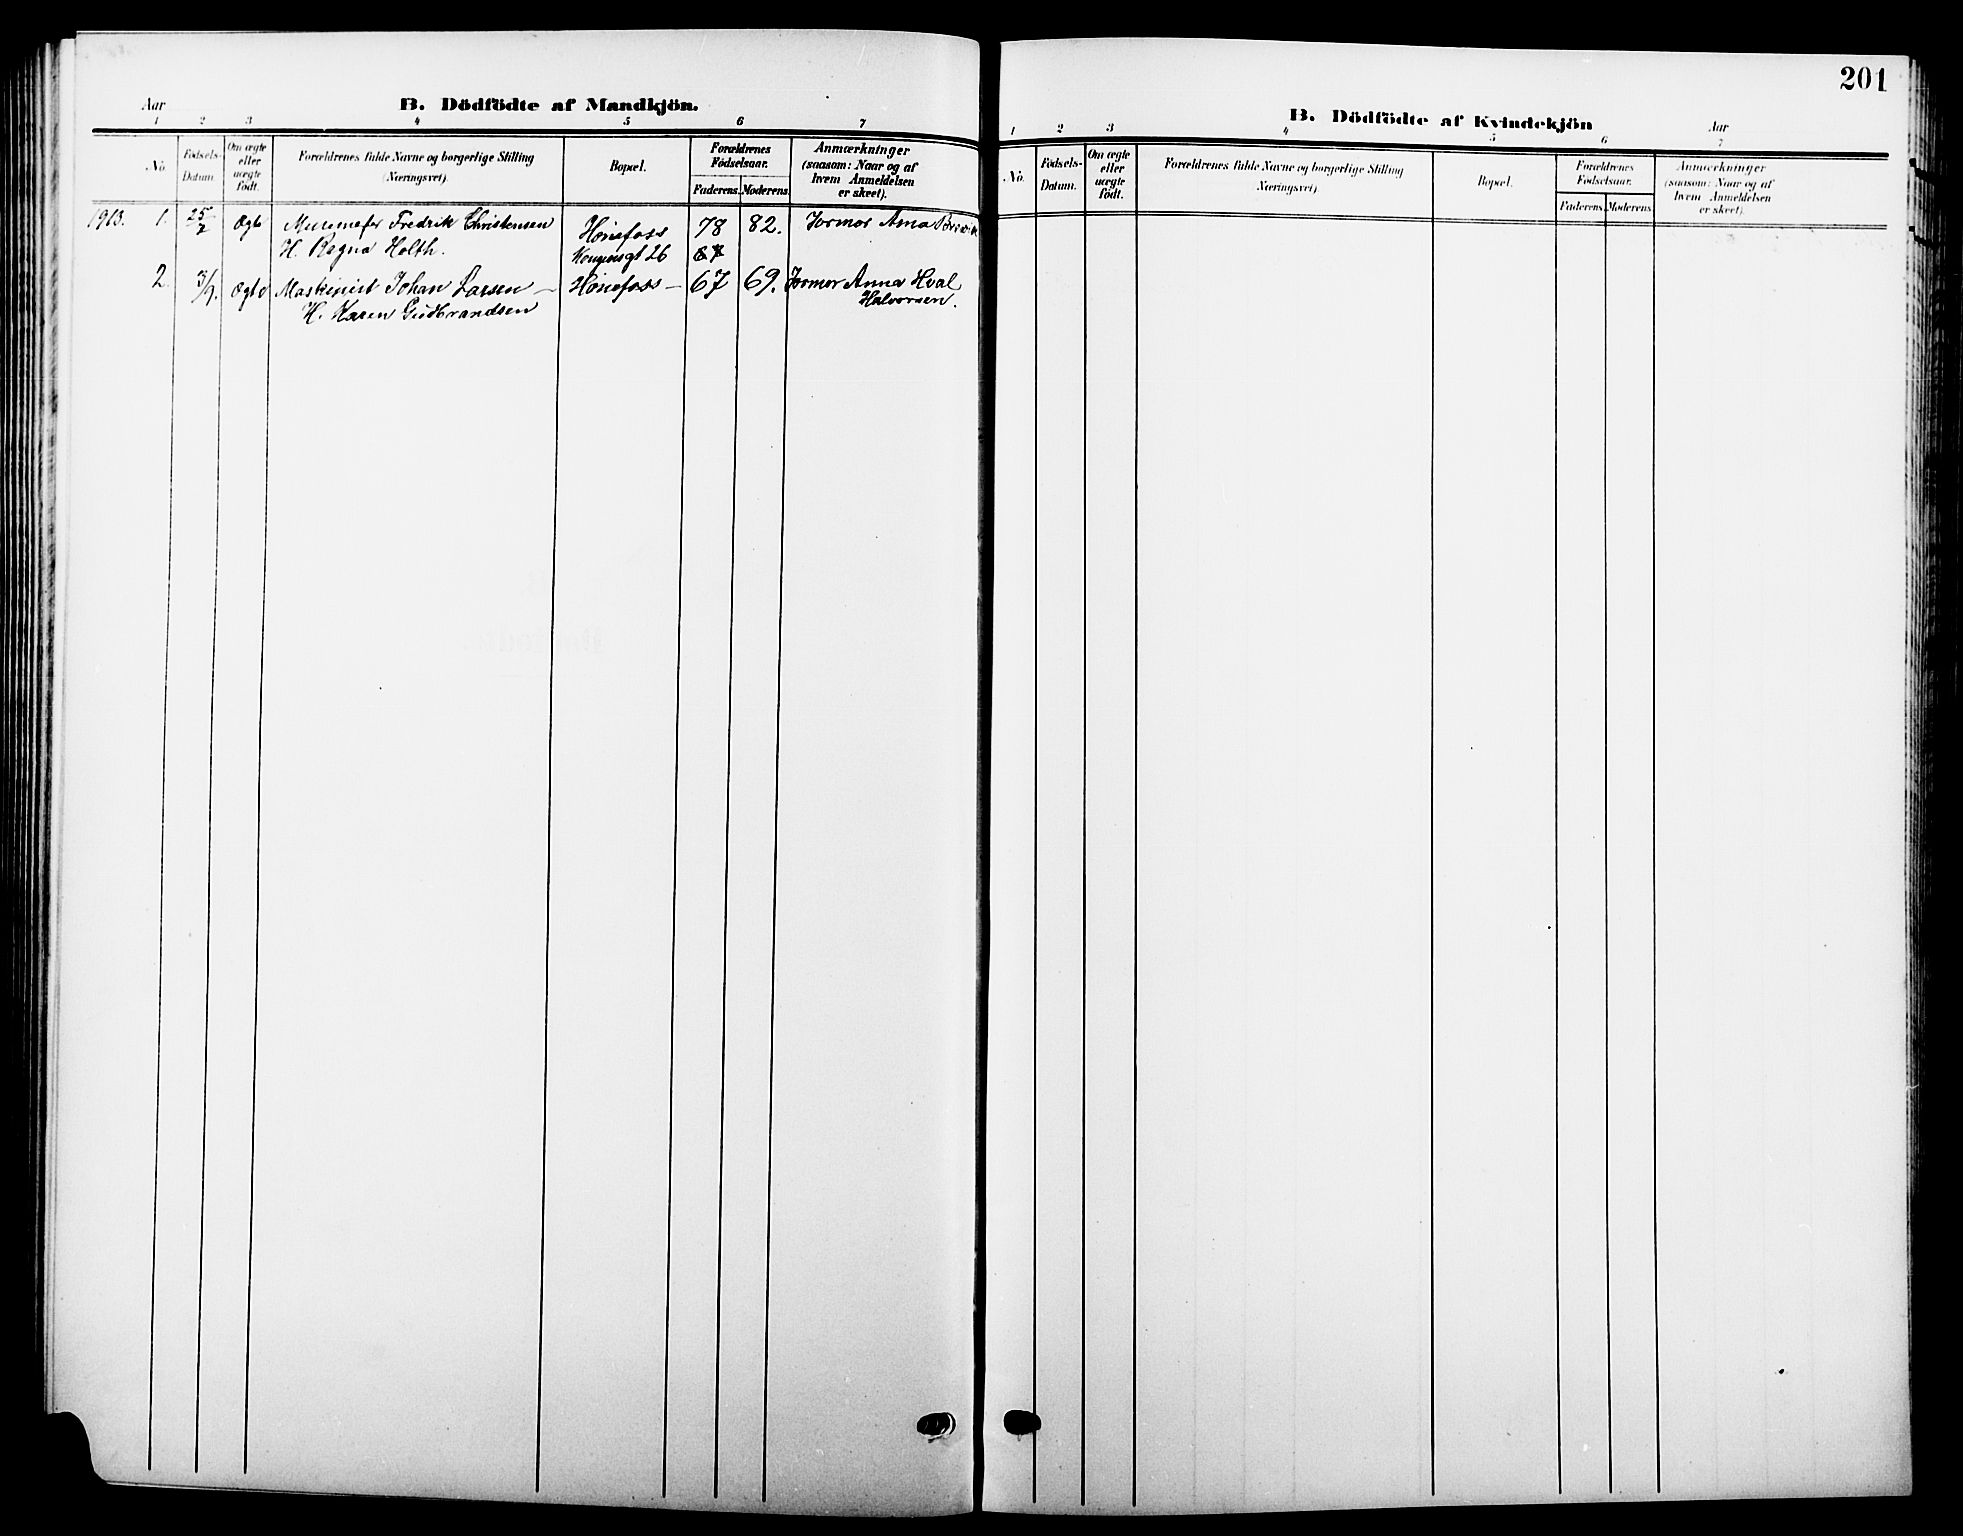 201
Aar
B. Dödfödte af Mandkjön.
1 2 3 4 5 6 7
No.
Födsels-
Datum.
Om ægte
eller
uægte
født.
Forældrenes fulde Navne og borgerlige Stilling
(Næringsvei)
Bopæl.
Forældrenes
Fødselsaar.
Faderens. Moderens.
Anmærkninger
(saasom: Naar og af
hvem Anmeldelsen
er skeet).
1913. 1. 25/7 Ægte Fredrik Christensen Hønefoss 78 82. Jormor Anna
H. Ragna Holth. Kongensgt 26
2. 3/9. Ægte Maskinist Johan Larsen – Hønefoss – 67 69. Jormor Anna Hval
H. Karen Gudbrandsen Halvorsen.
B. Dödfödte af Kvindekjön
Aar
1 2 3 4 5 6 7
No.
Födsels-
Datum.
Om ægte
eller
uægte
født.
Forældrenes fulde Navne og borgerlige Stilling
(Næringsvei)
Bopæl.
Forældrenes
Fødselsaar.
Faderens. Moderens.
Anmærkninger
(saasom: Naar og af
hvem Anmeldelsen
er skeet).